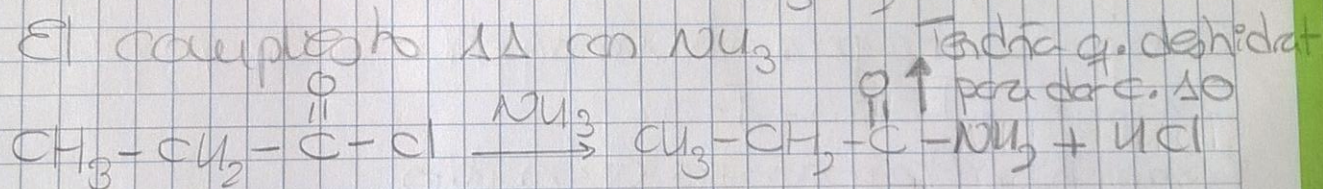 El compuesto 11 con NH3 Tendría q. deshidrat
para dar c. 10
O O ↑
CH3-CH2-C-Cl NH3 → CH3-CH2-C-NH2 + HCl